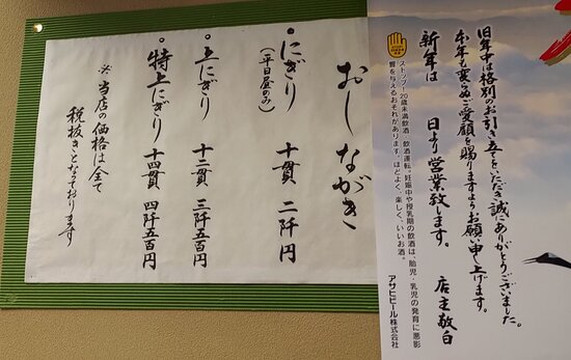 おしながき
・にぎり 十貫 二阡円
(平日昼のみ)
・上にぎり 十二貫 三阡五百円
・特上にぎり 十四貫 四阡五百円
※ 当店の価格は全て
税抜きとなっております
旧年中は格別のお引き立てをいただき誠にありがとうございました。
本年も変らぬご愛顧を賜りますようお願い申し上げます。
新年は 日より営業致します。 店主敬白
ストップ!20歳未満飲酒・飲酒運転。妊娠中や授乳期の飲酒は、胎児・乳児の発育に悪影
響を与えるおそれがあります。ほどよく、楽しく、いいお酒。
アサヒビール株式会社